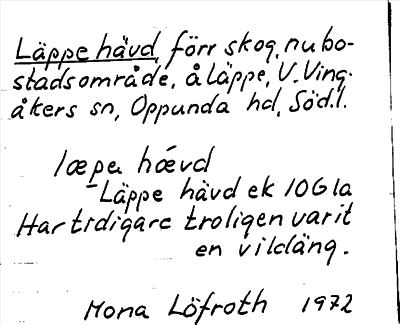 Läppe hävd, förr skog, nu bo-
stadsområde, å Läppe, V. Ving-
åkers sn, Oppunda hd, Söd.l.
læpa hǽvd
Läppe hävd ek 10G1a
Har tidigare troligen varit
en vildäng.
Mona Löfroth 1972